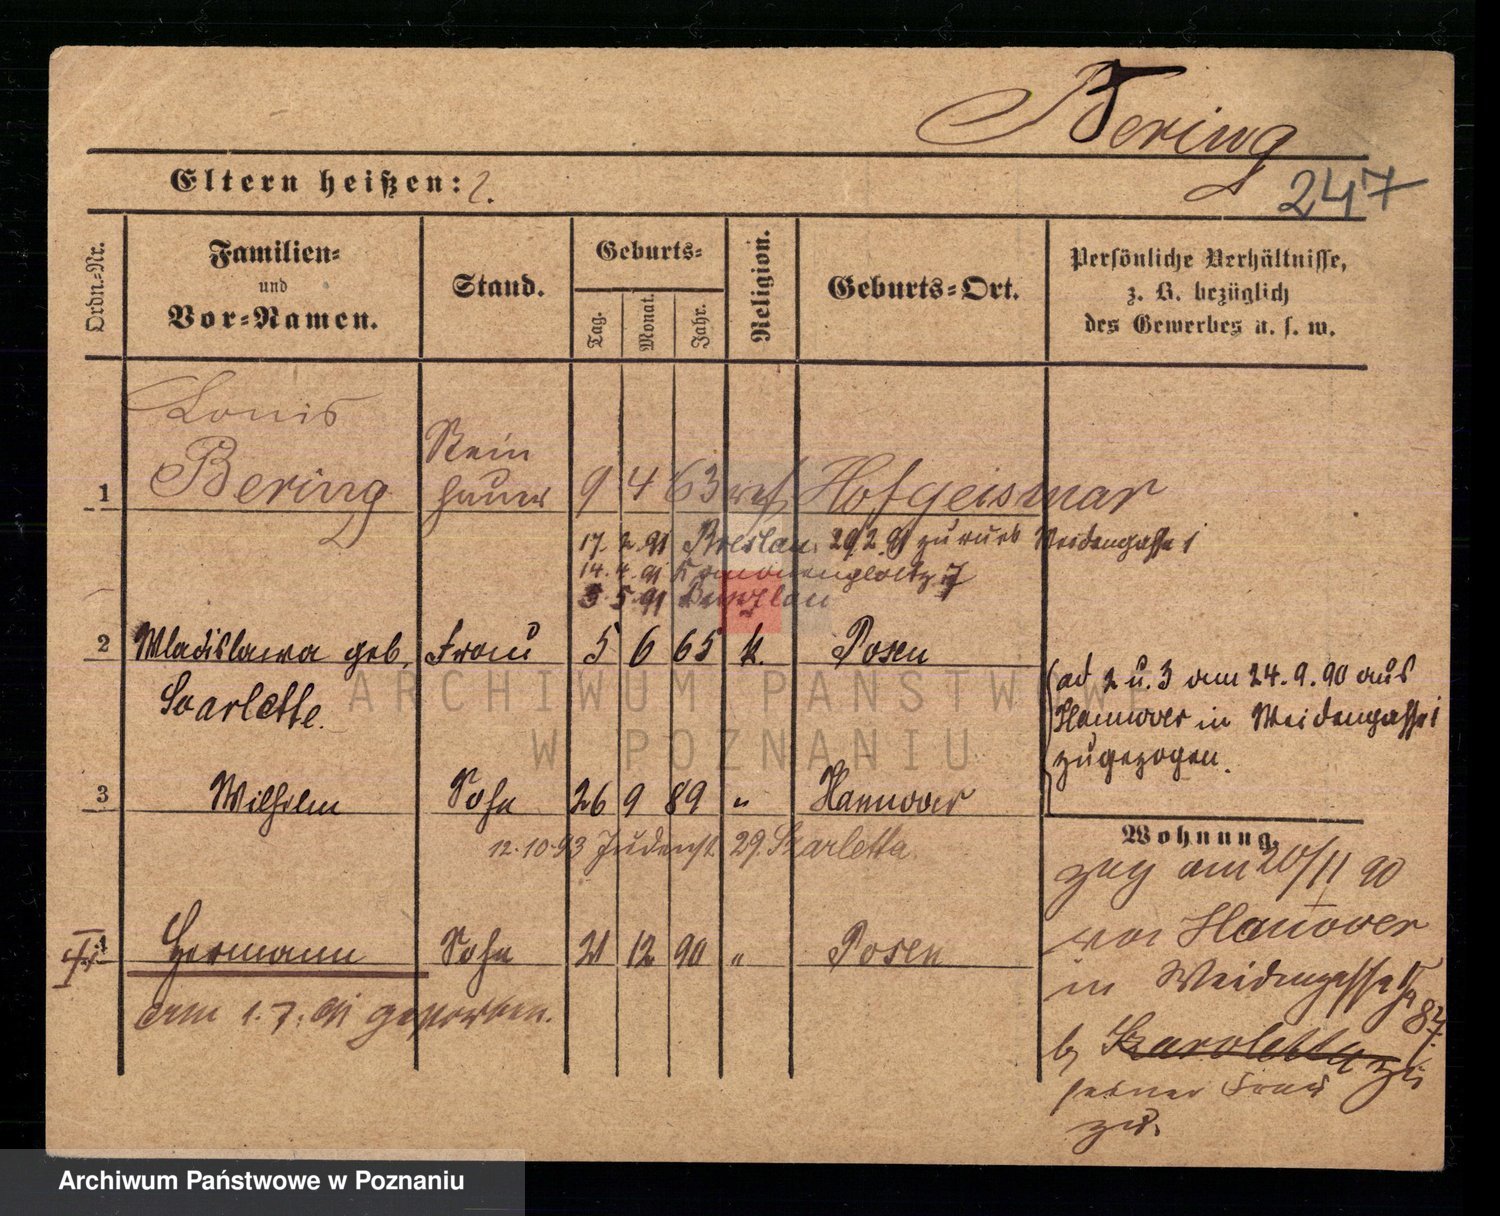 Bering
247
Eltern heißen: ?.
Ordn.-Nr.
Familien-
und
Vor-Namen.
Stand.
Geburts-
Tag.
Monat.
Jahr.
Religion.
Geburts-Ort.
Persönliche Verhältnisse,
z. B. bezüglich
des Gewerbes u. s. w.
Louis
Bering
Stein
hauer
1
9 4 63 ref. Hofgeismar
17. 2. 91 Breslau. 29.2.91 zurück Weidengasse 1
14. 4. 91
3. 5. 91 Breslau
2 Wladislawa geb. Frau 5 6 65 k. Posen
Scarlette.
(ad 2 u. 3 am 24. 9. 90 aus
Hannover in Weidengasse 1
zugezogen.
3 Wilhelm Sohn 26 9 89 " Hannover
12.10.93 Judenst. 29. Szarletta.
Wohnung.
zug am 20/11 90
von Hanover
in Weidengasse
b/ Szaroletta zu
seiner Frau
zu.
4 Hermann Sohn 21 12 90 " Posen
am 1. 7. 91 gestorben.
ARCHIWUM PAŃSTWOWE
W POZNANIU
Archiwum Państwowe w Poznaniu